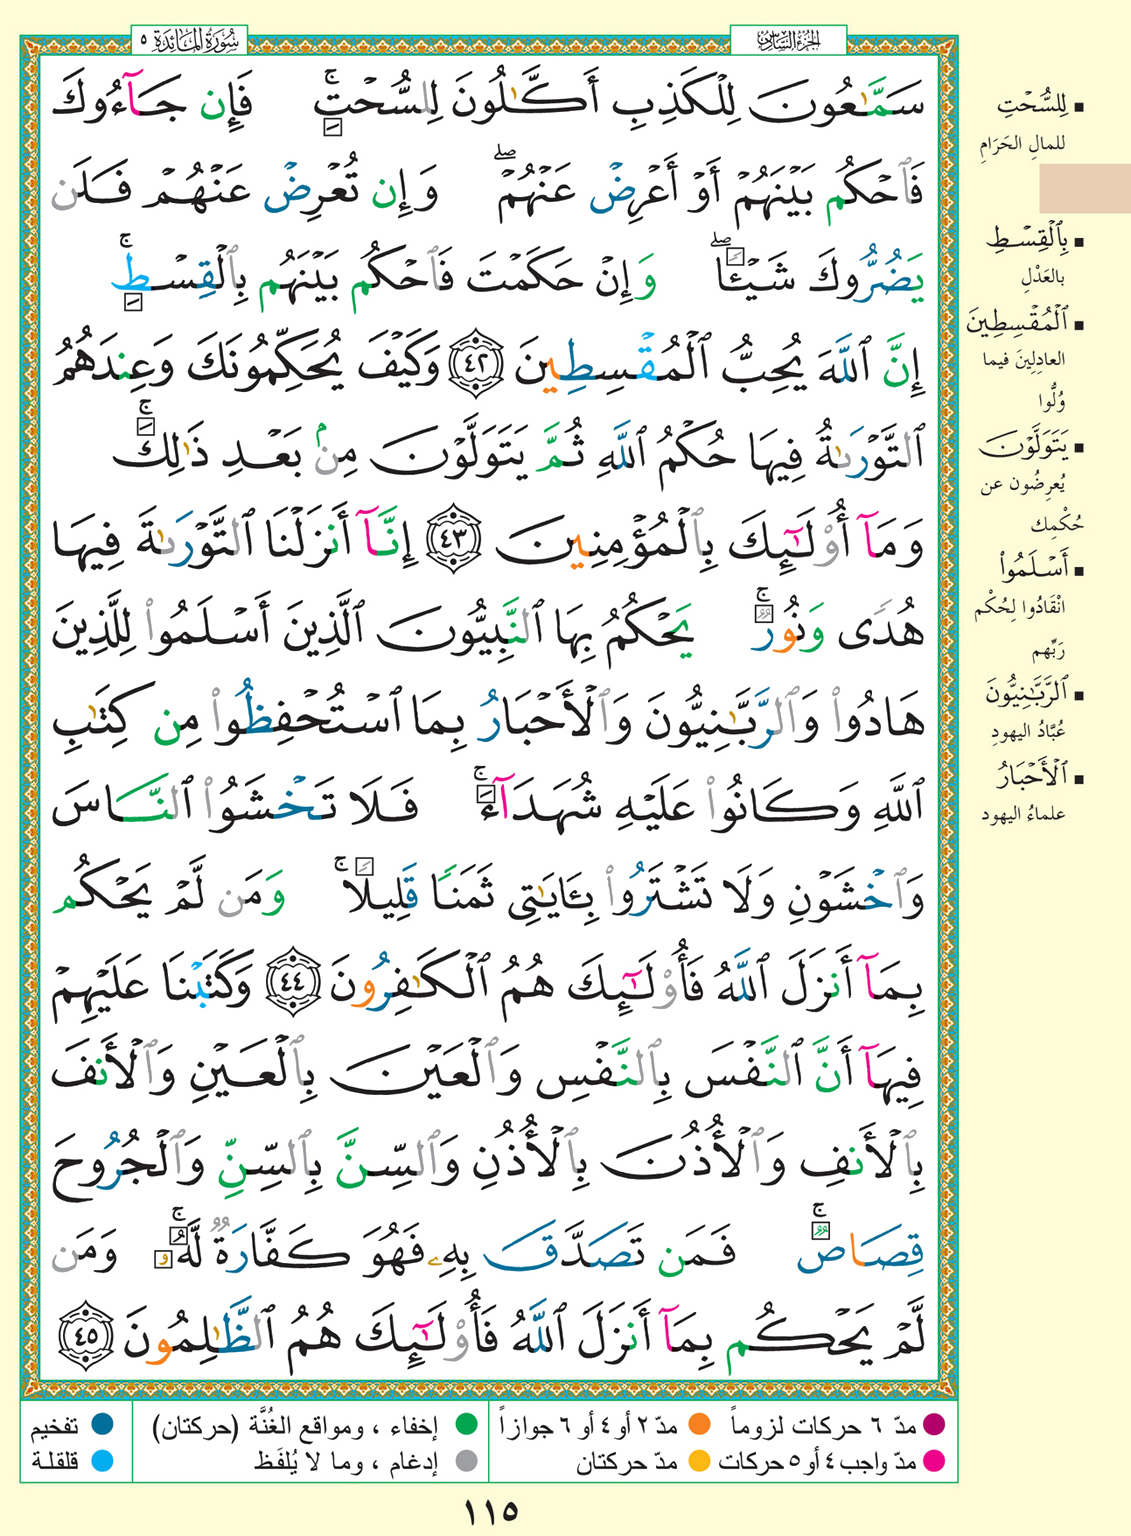 سُورَةُ المَائدة ٥
الجزء السادس
سَمَّٰعُونَ لِلۡكَذِبِ أَكَّٰلُونَ لِلسُّحۡتِۚ فَإِن جَآءُوكَ
فَٱحۡكُم بَيۡنَهُمۡ أَوۡ أَعۡرِضۡ عَنۡهُمۡۖ وَإِن تُعۡرِضۡ عَنۡهُمۡ فَلَن
يَضُرُّوكَ شَيۡـٔٗاۖ وَإِنۡ حَكَمۡتَ فَٱحۡكُم بَيۡنَهُم بِٱلۡقِسۡطِۚ
إِنَّ ٱللَّهَ يُحِبُّ ٱلۡمُقۡسِطِينَ ٤٢ وَكَيۡفَ يُحَكِّمُونَكَ وَعِندَهُمُ
ٱلتَّوۡرَىٰةُ فِيهَا حُكۡمُ ٱللَّهِ ثُمَّ يَتَوَلَّوۡنَ مِنۢ بَعۡدِ ذَٰلِكَۚ
وَمَآ أُوْلَٰٓئِكَ بِٱلۡمُؤۡمِنِينَ ٤٣ إِنَّآ أَنزَلۡنَا ٱلتَّوۡرَىٰةَ فِيهَا
هُدٗى وَنُورٞۚ يَحۡكُمُ بِهَا ٱلنَّبِيُّونَ ٱلَّذِينَ أَسۡلَمُواْ لِلَّذِينَ
هَادُواْ وَٱلرَّبَّٰنِيُّونَ وَٱلۡأَحۡبَارُ بِمَا ٱسۡتُحۡفِظُواْ مِن كِتَٰبِ
ٱللَّهِ وَكَانُواْ عَلَيۡهِ شُهَدَآءَۚ فَلَا تَخۡشَوُاْ ٱلنَّاسَ
وَٱخۡشَوۡنِ وَلَا تَشۡتَرُواْ بِـَٔايَٰتِي ثَمَنٗا قَلِيلٗاۚ وَمَن لَّمۡ يَحۡكُم
بِمَآ أَنزَلَ ٱللَّهُ فَأُوْلَٰٓئِكَ هُمُ ٱلۡكَٰفِرُونَ ٤٤ وَكَتَبۡنَا عَلَيۡهِمۡ
فِيهَآ أَنَّ ٱلنَّفۡسَ بِٱلنَّفۡسِ وَٱلۡعَيۡنَ بِٱلۡعَيۡنِ وَٱلۡأَنفَ
بِٱلۡأَنفِ وَٱلۡأُذُنَ بِٱلۡأُذُنِ وَٱلسِّنَّ بِٱلسِّنِّ وَٱلۡجُرُوحَ
قِصَاصٞۚ فَمَن تَصَدَّقَ بِهِۦ فَهُوَ كَفَّارَةٞ لَّهُۥۚ وَمَن
لَّمۡ يَحۡكُم بِمَآ أَنزَلَ ٱللَّهُ فَأُوْلَٰٓئِكَ هُمُ ٱلظَّٰلِمُونَ ٤٥
لِلسُّحۡتِ
للمالِ الحَرَامِ
بِٱلۡقِسۡطِ
بالعَدْلِ
ٱلۡمُقۡسِطِينَ
العادِلِينَ فيما
وُلُّوا
يَتَوَلَّوۡنَ
يُعرِضُون عن
حُكْمِك
أَسۡلَمُواْ
انْقَادُوا لِحُكْم
رَبِّهم
ٱلرَّبَّٰنِيُّونَ
عُبَّادُ اليهودِ
ٱلۡأَحۡبَارُ
علماءُ اليهود
مدّ ٦ حركات لزوماً مدّ ٢ أو ٤ أو ٦ جوازاً إخفاء ، ومواقع الغُنَّة (حركتان) تفخيم
مدّ واجب ٤ أو ٥ حركات مدّ حركتان إدغام ، وما لا يُلفَظ قلقلة
١١٥